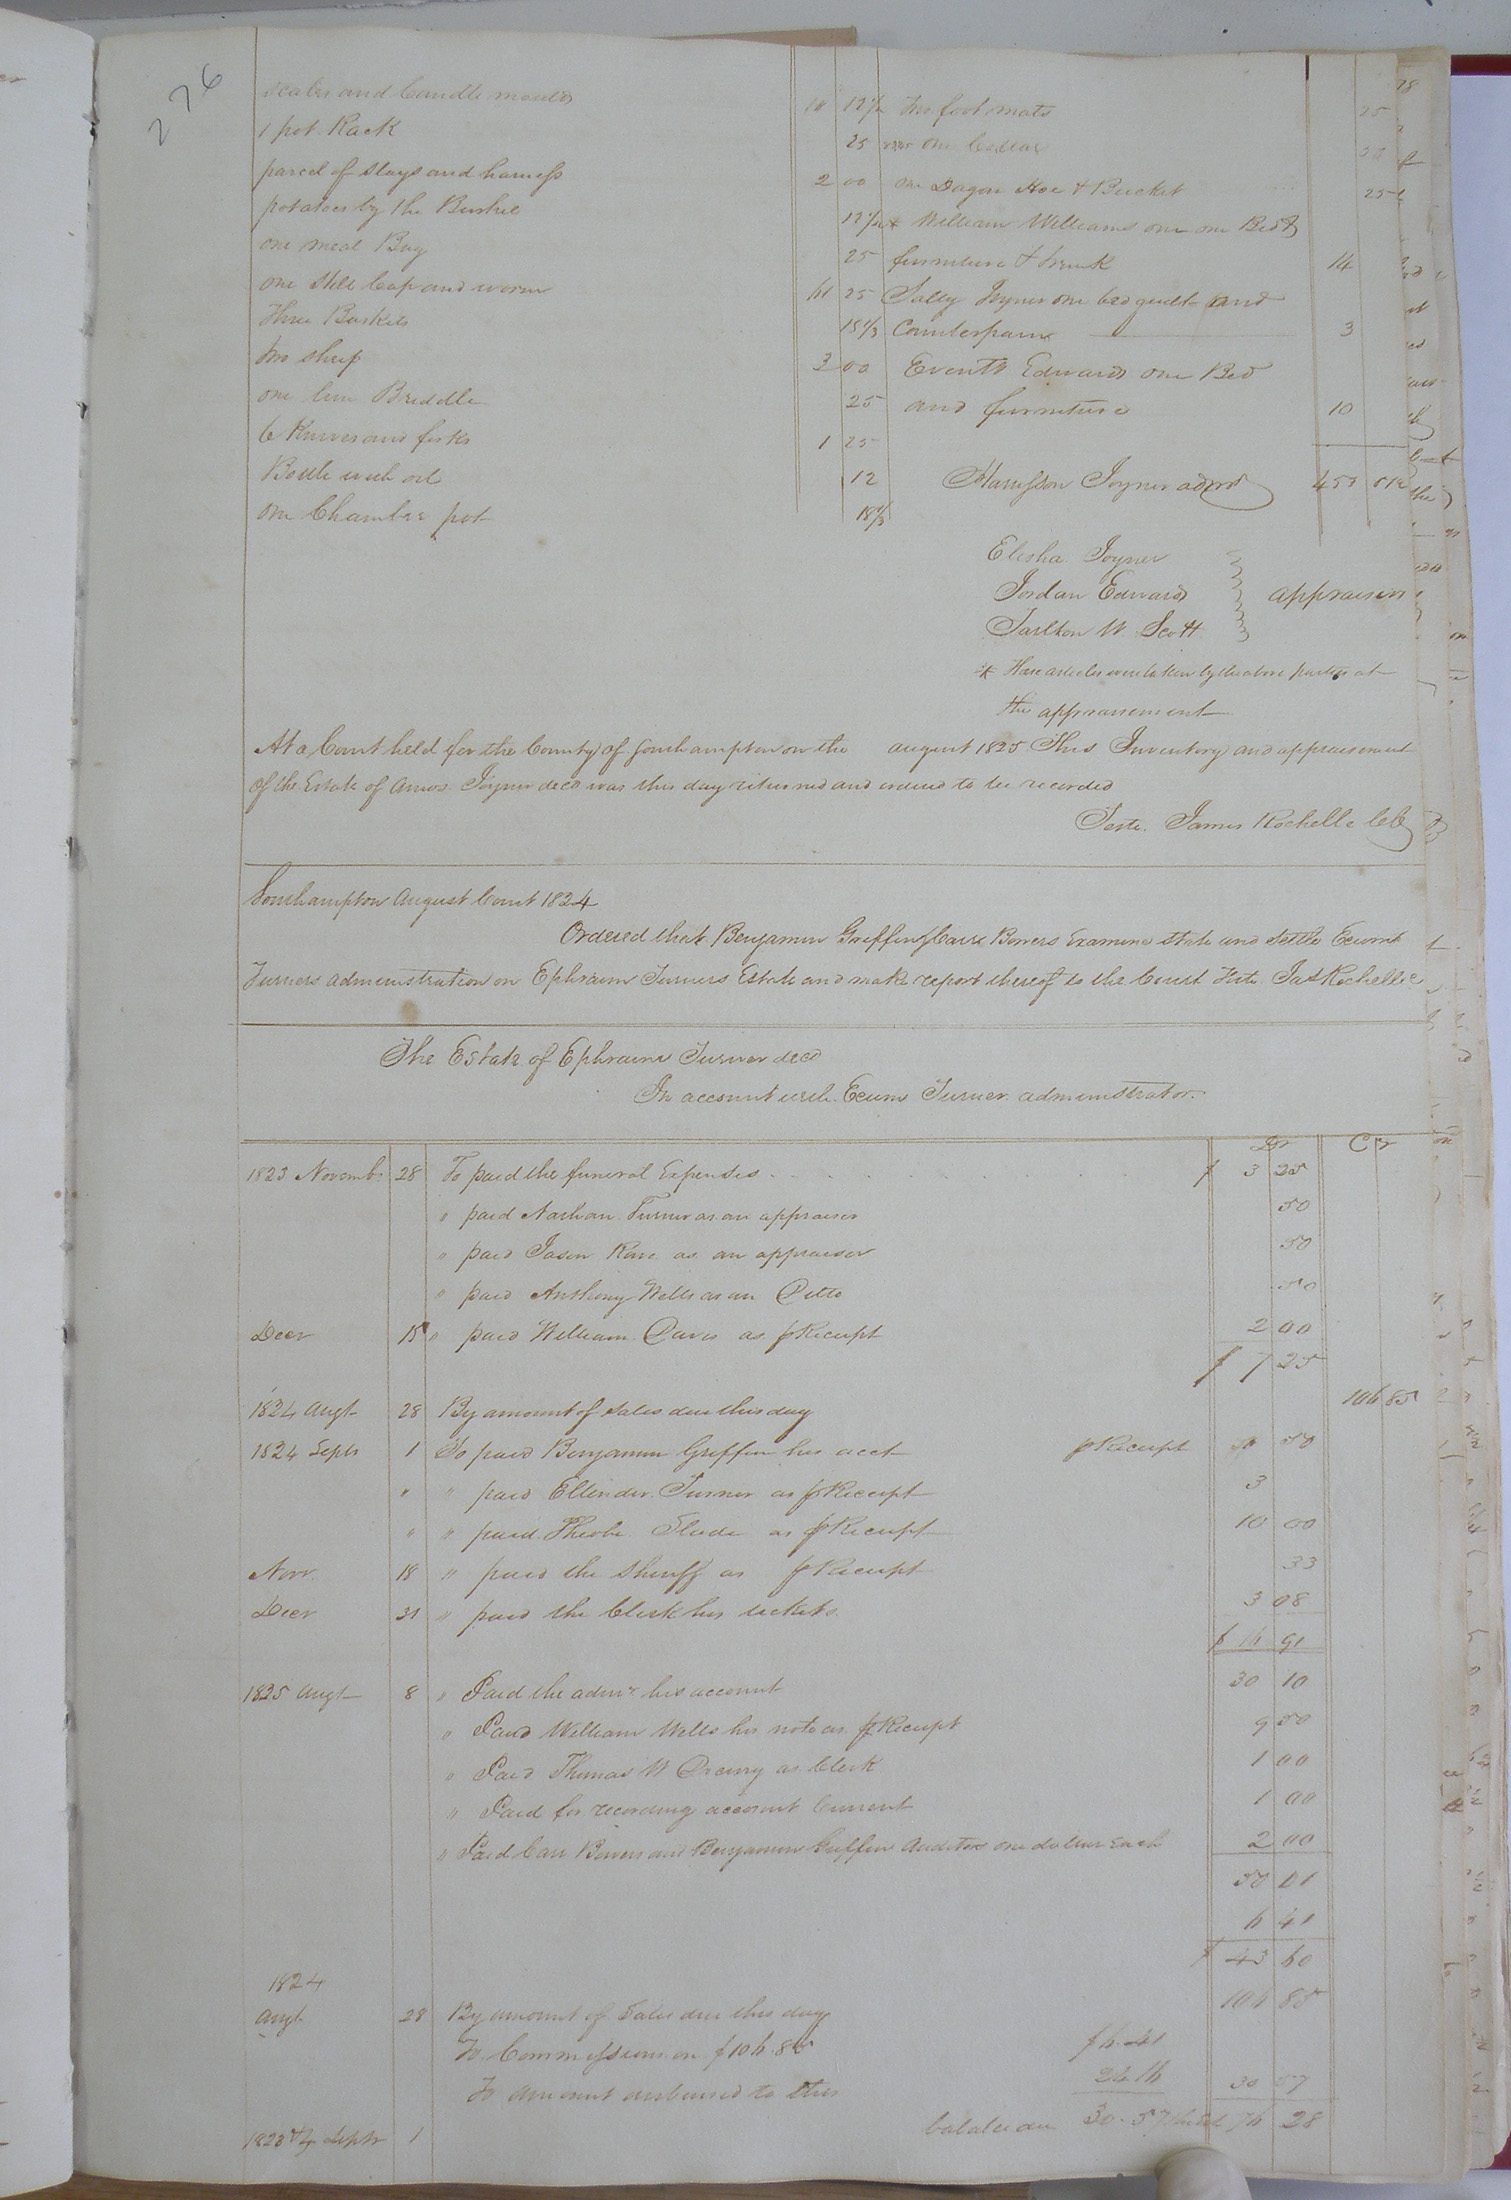 276
scales and Candle moulds
1 pot Rack 25
parcel of Slays and harness 2 00
potatoes by the Bushel
one meal Bag 25
one Still Cap and worm 25
Three Baskets
two sheep 3 00
one Briddle 25
6 Knives and forks 1 25
Bottle with oil 12
one Chamber pot
two foot mats 25
one
one Hoe & Bucket 25
* William Williams one Bed &
furniture & trunk 14
Sally Joyner one bed quilt and
Counterpain 3
Edwards one Bed
and furniture 10
Joyner admr
Elisha Joyner
Jordan Edwards } appraisers
Tarlton W Scott
* These articles were taken by the above parties at
the appraisement
At a Court held for the County of Southampton on the august 1825 This Inventory and appraisement
of the Estate of Amos Joyner decd was this day returned and ordered to be recorded
Teste. James Rochelle
Southampton August Court 1824
Ordered that Benjamin Griffin & Carr Bowers Examine State and Settle
Turners administration on Ephraim Turners Estate and make report thereof to the Court Teste Jas Rochelle
The Estate of Ephraim Turner decd
In account with Turner administrator.
Dr Cr
1823 Novemb 28 To paid the funeral Expenses $ 3 25
" paid Nathan Turner as an appraiser 50
" paid Jason as an appraiser 50
" paid Anthony Wells as an Ditto 50
Decr 15 " paid William Davis as pr Receipt 2 00
$ 7 25
1824 Augt 28 By amount of Sales due this day 106 85
1824 Septr 1 To paid Benjamin Griffin his acct pr Receipt 50
" " paid Turner as pr Receipt 3
" " paid as pr Receipt 10 00
Novr 18 " paid the Sheriff as pr Receipt 33
Decr 31 " paid the Clerk his tickets 3 08
$ 16 91
1825 Augt 8 " Paid the admr his account 30 10
" Paid William Wells his note as pr Receipt 9 50
" Paid Thomas W as Clerk 1 00
" Paid for recording account Current 1 00
" Paid Carr Bowers and Benjamin Griffin Auditors one dollar Each 2 00
50 01
6 41
$ 43 60
1824
Augt 28 By amount of Sales due this day 106 85
To Commissions on $106.85 $6.41
To amount disbursed to this 24.16 30 57
Septr 1 30.57 76 28